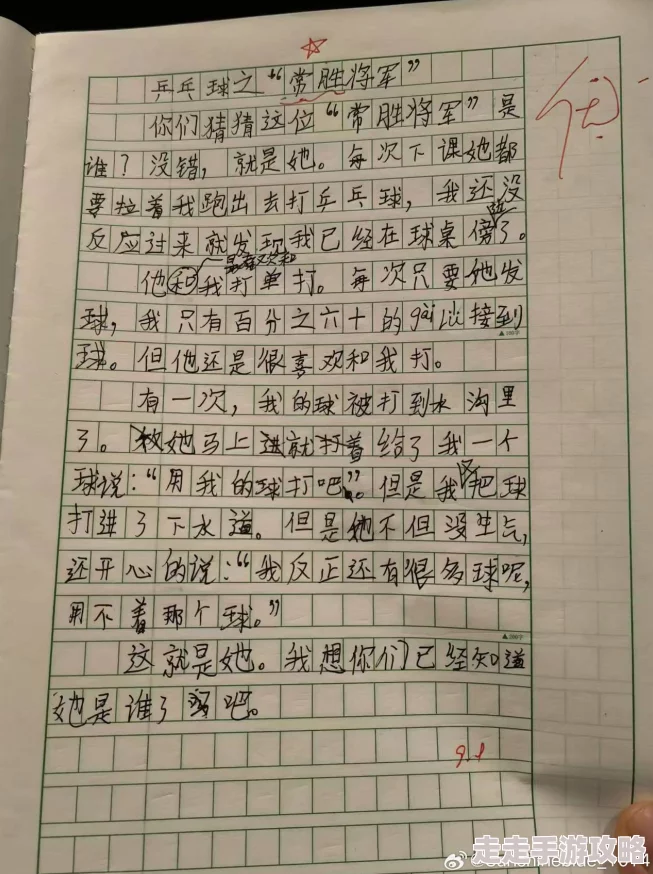 乒乓球之“常胜将军”
你们猜猜这位“常胜将军”是
谁？没错，就是她。每次下课她都
要拉着我跑出去打乒乓球，我还没
反应过来就发现我已经在球桌傍了。
最喜欢和
他和我打单打。每次只要她发
球，我只有百分之六十的gài lǜ接到
球。但他还是很喜欢和我打。
有一次，我的球被打到水沟里
了。她马上就给了我一个
球说：“用我的球打吧”。但是我又把球
打进了下水道。但是她不但没生气，
还开心的说：“我反正还有很多球呢，
用不着那个球。”
这就是她。我想你们已经知道
她是谁了吧。
优
9.1
走走手游攻略